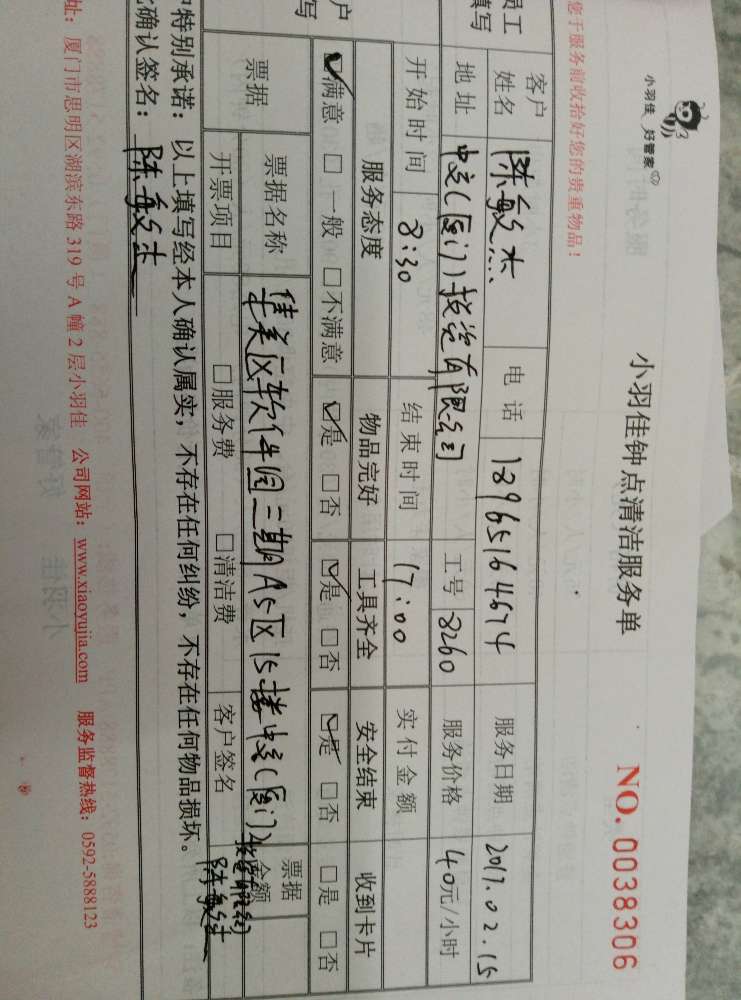 小羽佳 好管家
小羽佳钟点清洁服务单
NO. 0038306
您于服务前收拾好您的贵重物品!
员工
填写
客户
姓名
电话
18965164674
服务日期
2017.02.15
地址
工号
8260
服务价格
40元/小时
开始时间
8:30
结束时间
17:00
实付金额
户
写
服务态度
物品完好
工具齐全
安全结束
收到卡片
☑满意 □一般 □不满意
☑是 □否
☑是 □否
☑是 □否
□是 □否
票据
票据名称
票据
金额
开票项目
□服务费
□清洁费
客户签名
特别承诺:以上填写经本人确认属实,不存在任何纠纷,不存在任何物品损坏。
确认签名:
址:厦门市思明区湖滨东路 319 号 A 幢 2 层小羽佳 公司网站:www.xiaoyujia.com 服务监督热线:0592-5888123